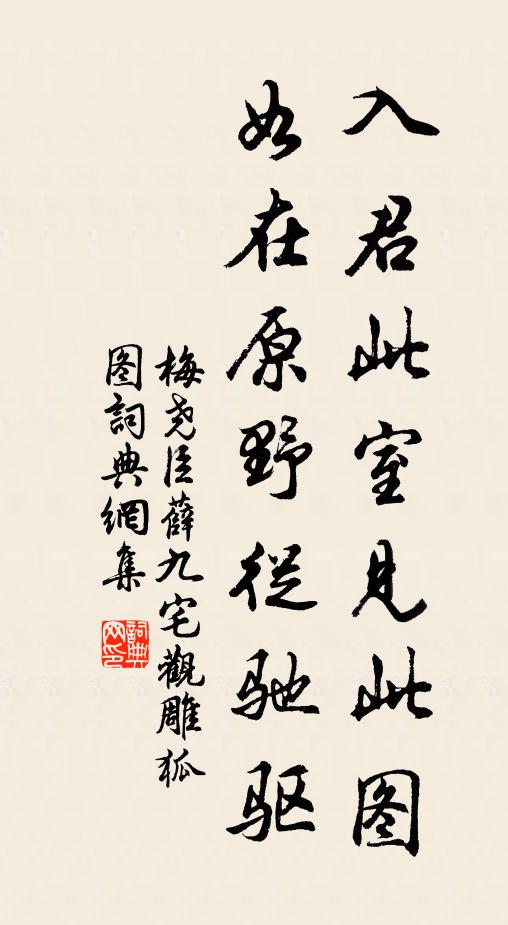 入君此室见此图
如在原野従驰驱
梅尧臣薛九宅觀雕狐
图詞典網集
詞典网印